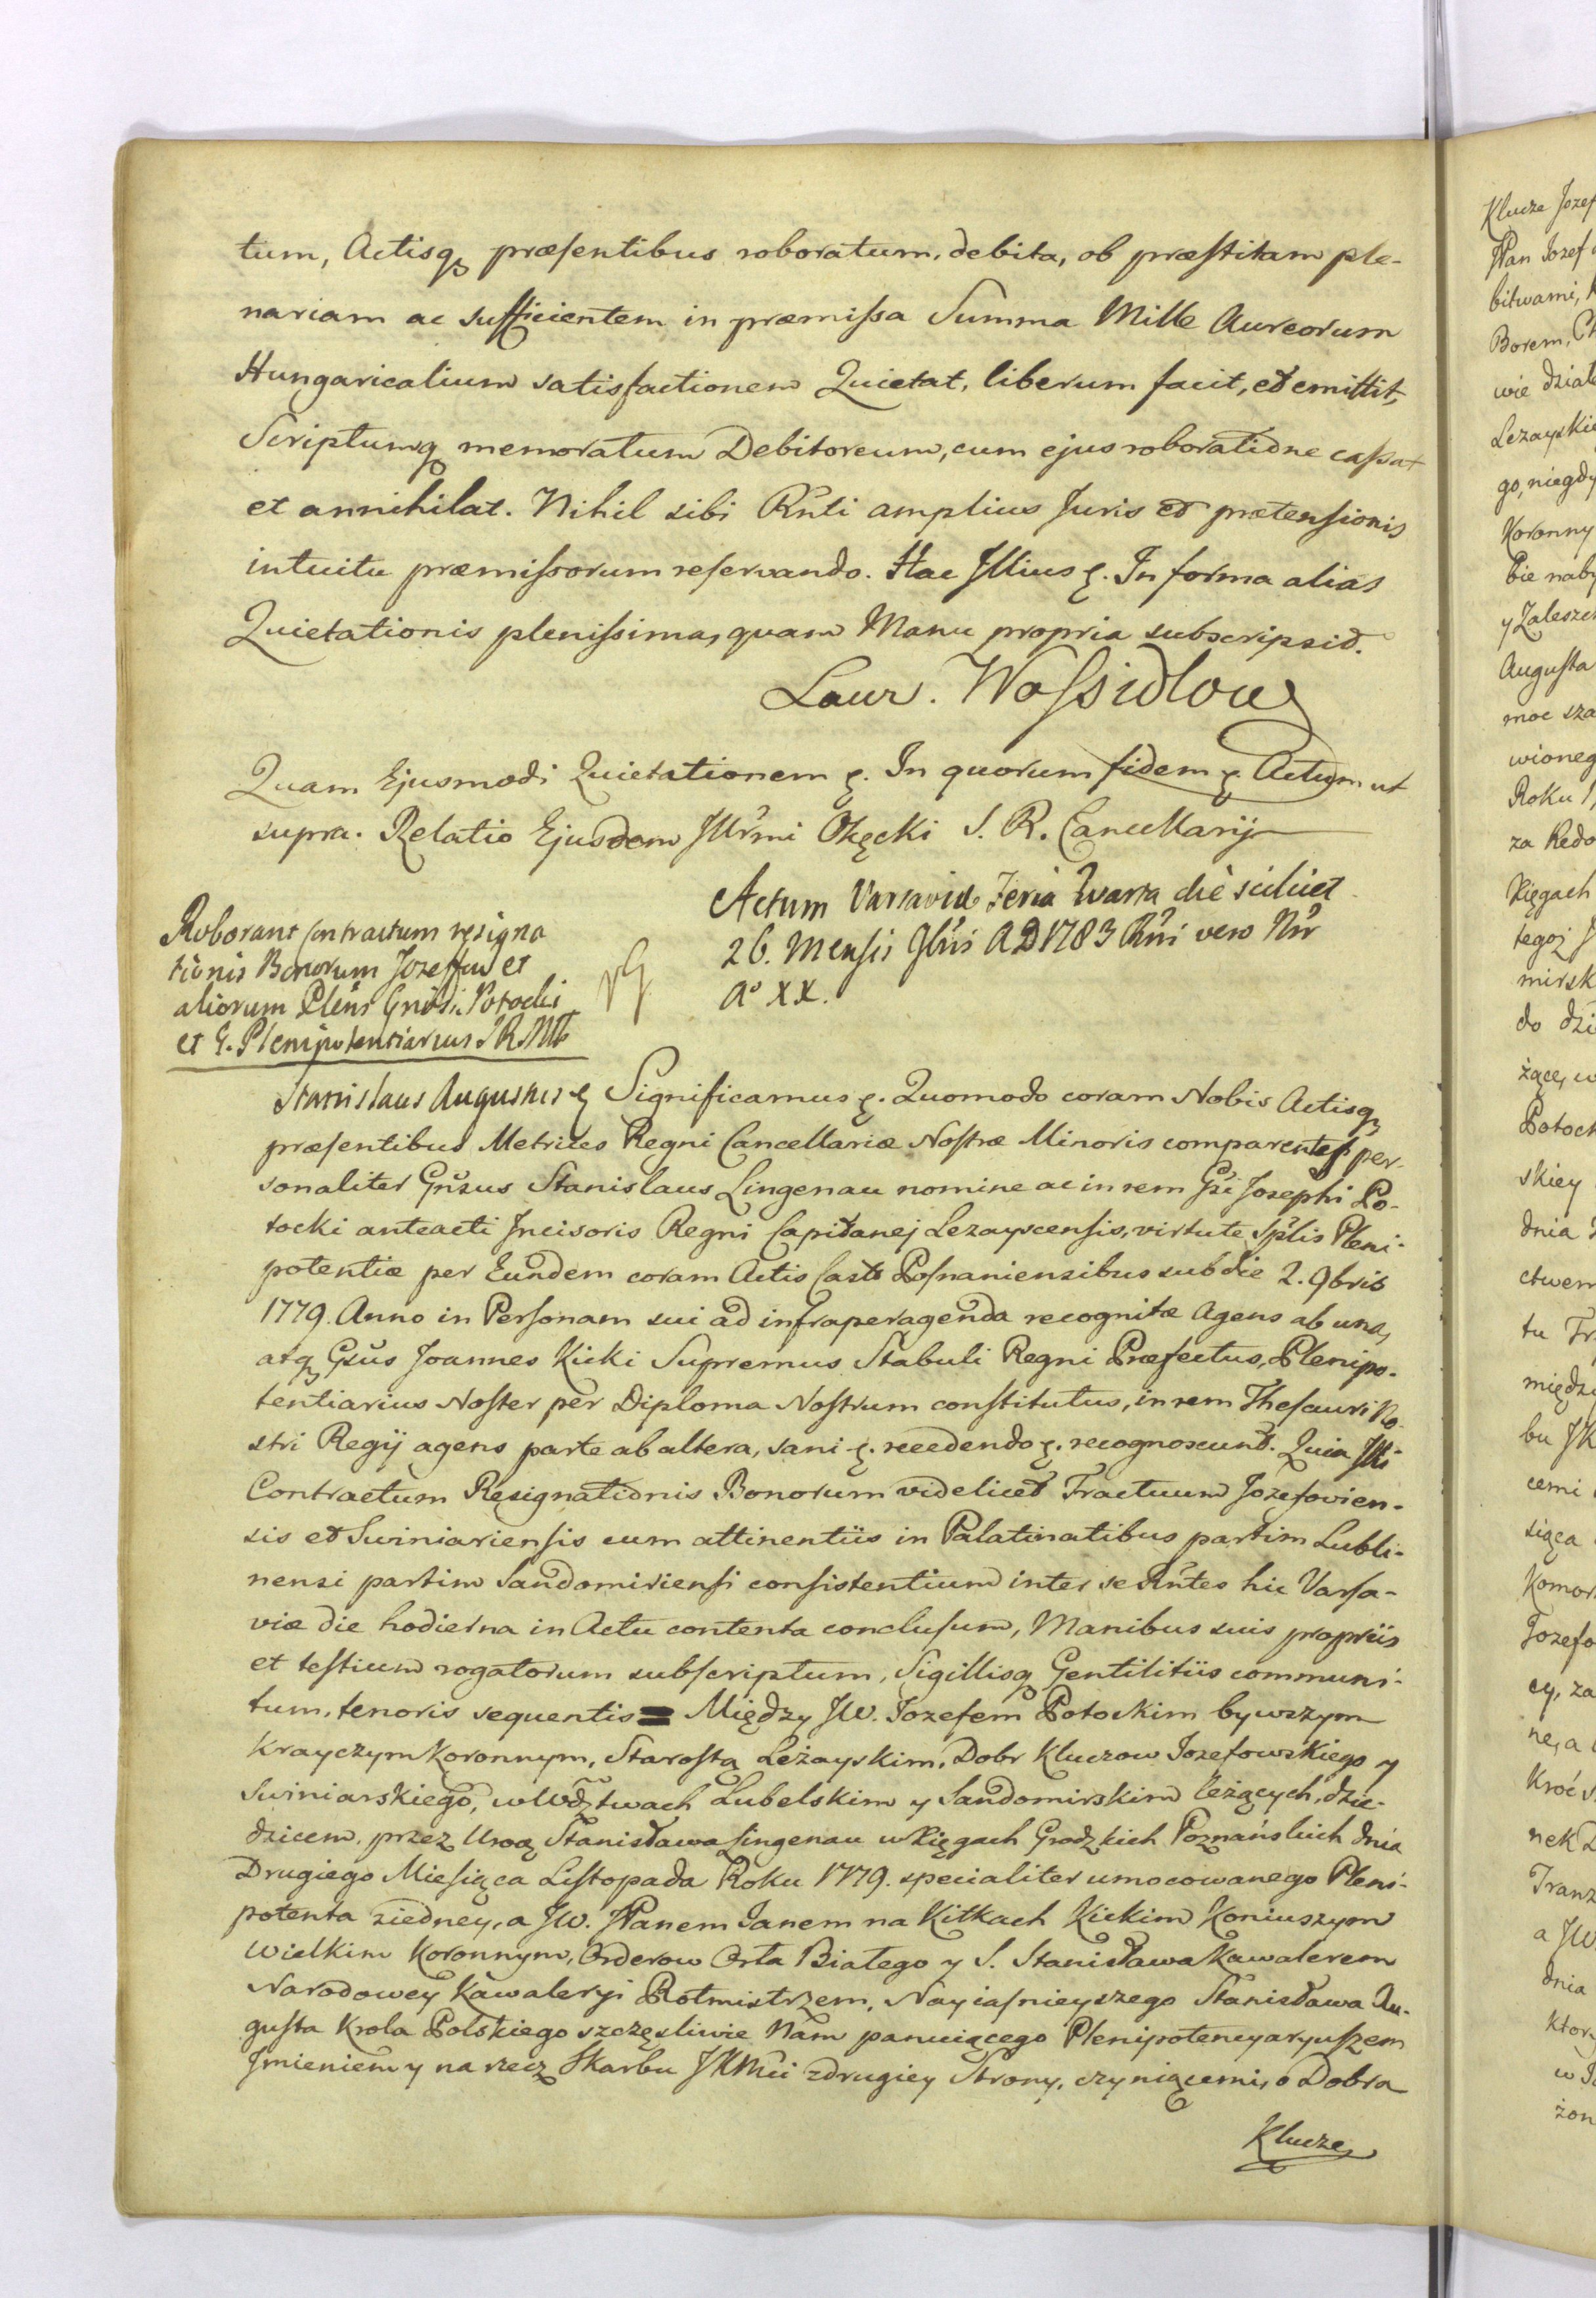 tum, Actisq præsentibus roboratum, debita, ob præstitam ple-
nariam ac sufficientem in præmissa Summa Mille Aureorum
Hungaricalium satisfactionem Quietat, liberum facit, et emittit,
Scriptumq memoratum Debitoreum, cum ejus roboratione cassat
et annihilat. Nihil sibi Rñti amplius Juris et prætensionis
intuitu præmissorum reservando. Hac Illius &. In forma alias
Quietationis plenissima, quam Manu propria subscripsit.
Laur. Wossidlow
Quam Ejusmodi Quietationem &. In quorum fidem &. Actum ut
supra. Relatio Ejusdem Illrmi Okęcki S. R. Cancellarij
Actum Varsaviæ Feria Quarta die scilicet
26. Mensis 9bris AD 1783 Rñi vero Nri
Aº XX.
Roborant Contractum resigna
tionis Bonorum Jozeffow et
aliorum Pleñs Gñosi Potocki
et G. Plenipotentiarius SRMtis
Stanislaus Augustus & Significamus &. Quomodo coram Nobis Actisq
præsentibus Metrices Regni Cancellariæ Nostræ Minoris comparentes per-
sonaliter Gñsus Stanislaus Lingenau nomine ac in rem Gsi Josephi Po-
tocki anteacti Incisoris Regni Capitanej Lezayscensis, virtute Splis Pleni-
potentiæ per Eundem coram Actis Castr Posnaniensibus sub die 2. 9bris
1779. Anno in Personam sui ad infraperagenda recognitæ Agens ab una,
atq Gsus Joannes Kicki Supremus Stabuli Regni Præfectus, Plenipo-
tentiarius Noster per Diploma Nostrum constitutus, in rem Thesauri No-
stri Regij agens parte ab altera, sani &. recedendo &. recognoscunt. Quia Illi
Contractum Resignationis Bonorum videlicet Tractuum Jozefovien-
sis et Swiniariensis cum attinentiis in Palatinatibus partim Lubli-
nensi partim Sandomiriensi consistentium inter se Rñtes hic Varsa-
viæ die hodierna in Actu contenta conclusum, Manibus suis propriis
et testium rogatorum subscriptum, Sigillisq Gentilitiis communi-
tum, tenoris sequentis = Między JW. Jozefem Potockim bywszym
Krayczym Koronnym, Starostą Leżayskim, Dobr Kluczow Jozefowskiego y
Swiniarskiego, w Wdztwach Lubelskim y Sandomirskim leżących, dzie-
dzicem, przez Uroą Stanisława Lingenau w Xięgach Grodzkich Poznańskich dnia
Drugiego Miesiąca Listopada Roku 1779. specialiter umocowanego Pleni-
potenta ziedney, a JW. JPanem Janem na Kitkach Kickim Koniuszym
Wielkim Koronnym, Orderow Orła Białego y S. Stanisława Kawalerem
Narodowey Kawaleryi Rotmistrzem, Nayiasnieyszego Stanisława Au-
gusta Krola Polskiego szczęsliwie Nam panuiącego Plenipotencyaryuszem
Imieniem y na rzecz Skarbu JKMci zdrugiey Strony, czyniącemi, o Dobra
Klucze
Klucze Jozef
JPan Jozef
bitwami,
Borem,
wie
Lezayskie
go, niegdy
Koronny
bie naby
y Zaleszcz
Augusta
moc
wioneg
Roku
za Redo
Xięgach
tegoż
mirsk
do dzi
żące, w
Potock
skiey
dnia
ctwem
tu
między
bu JK
cemi
siąca
Komor
Jozefo
cy, za
ne, a
Kroć
nek
Tranz
a JW
dnia
ktory
w
żon